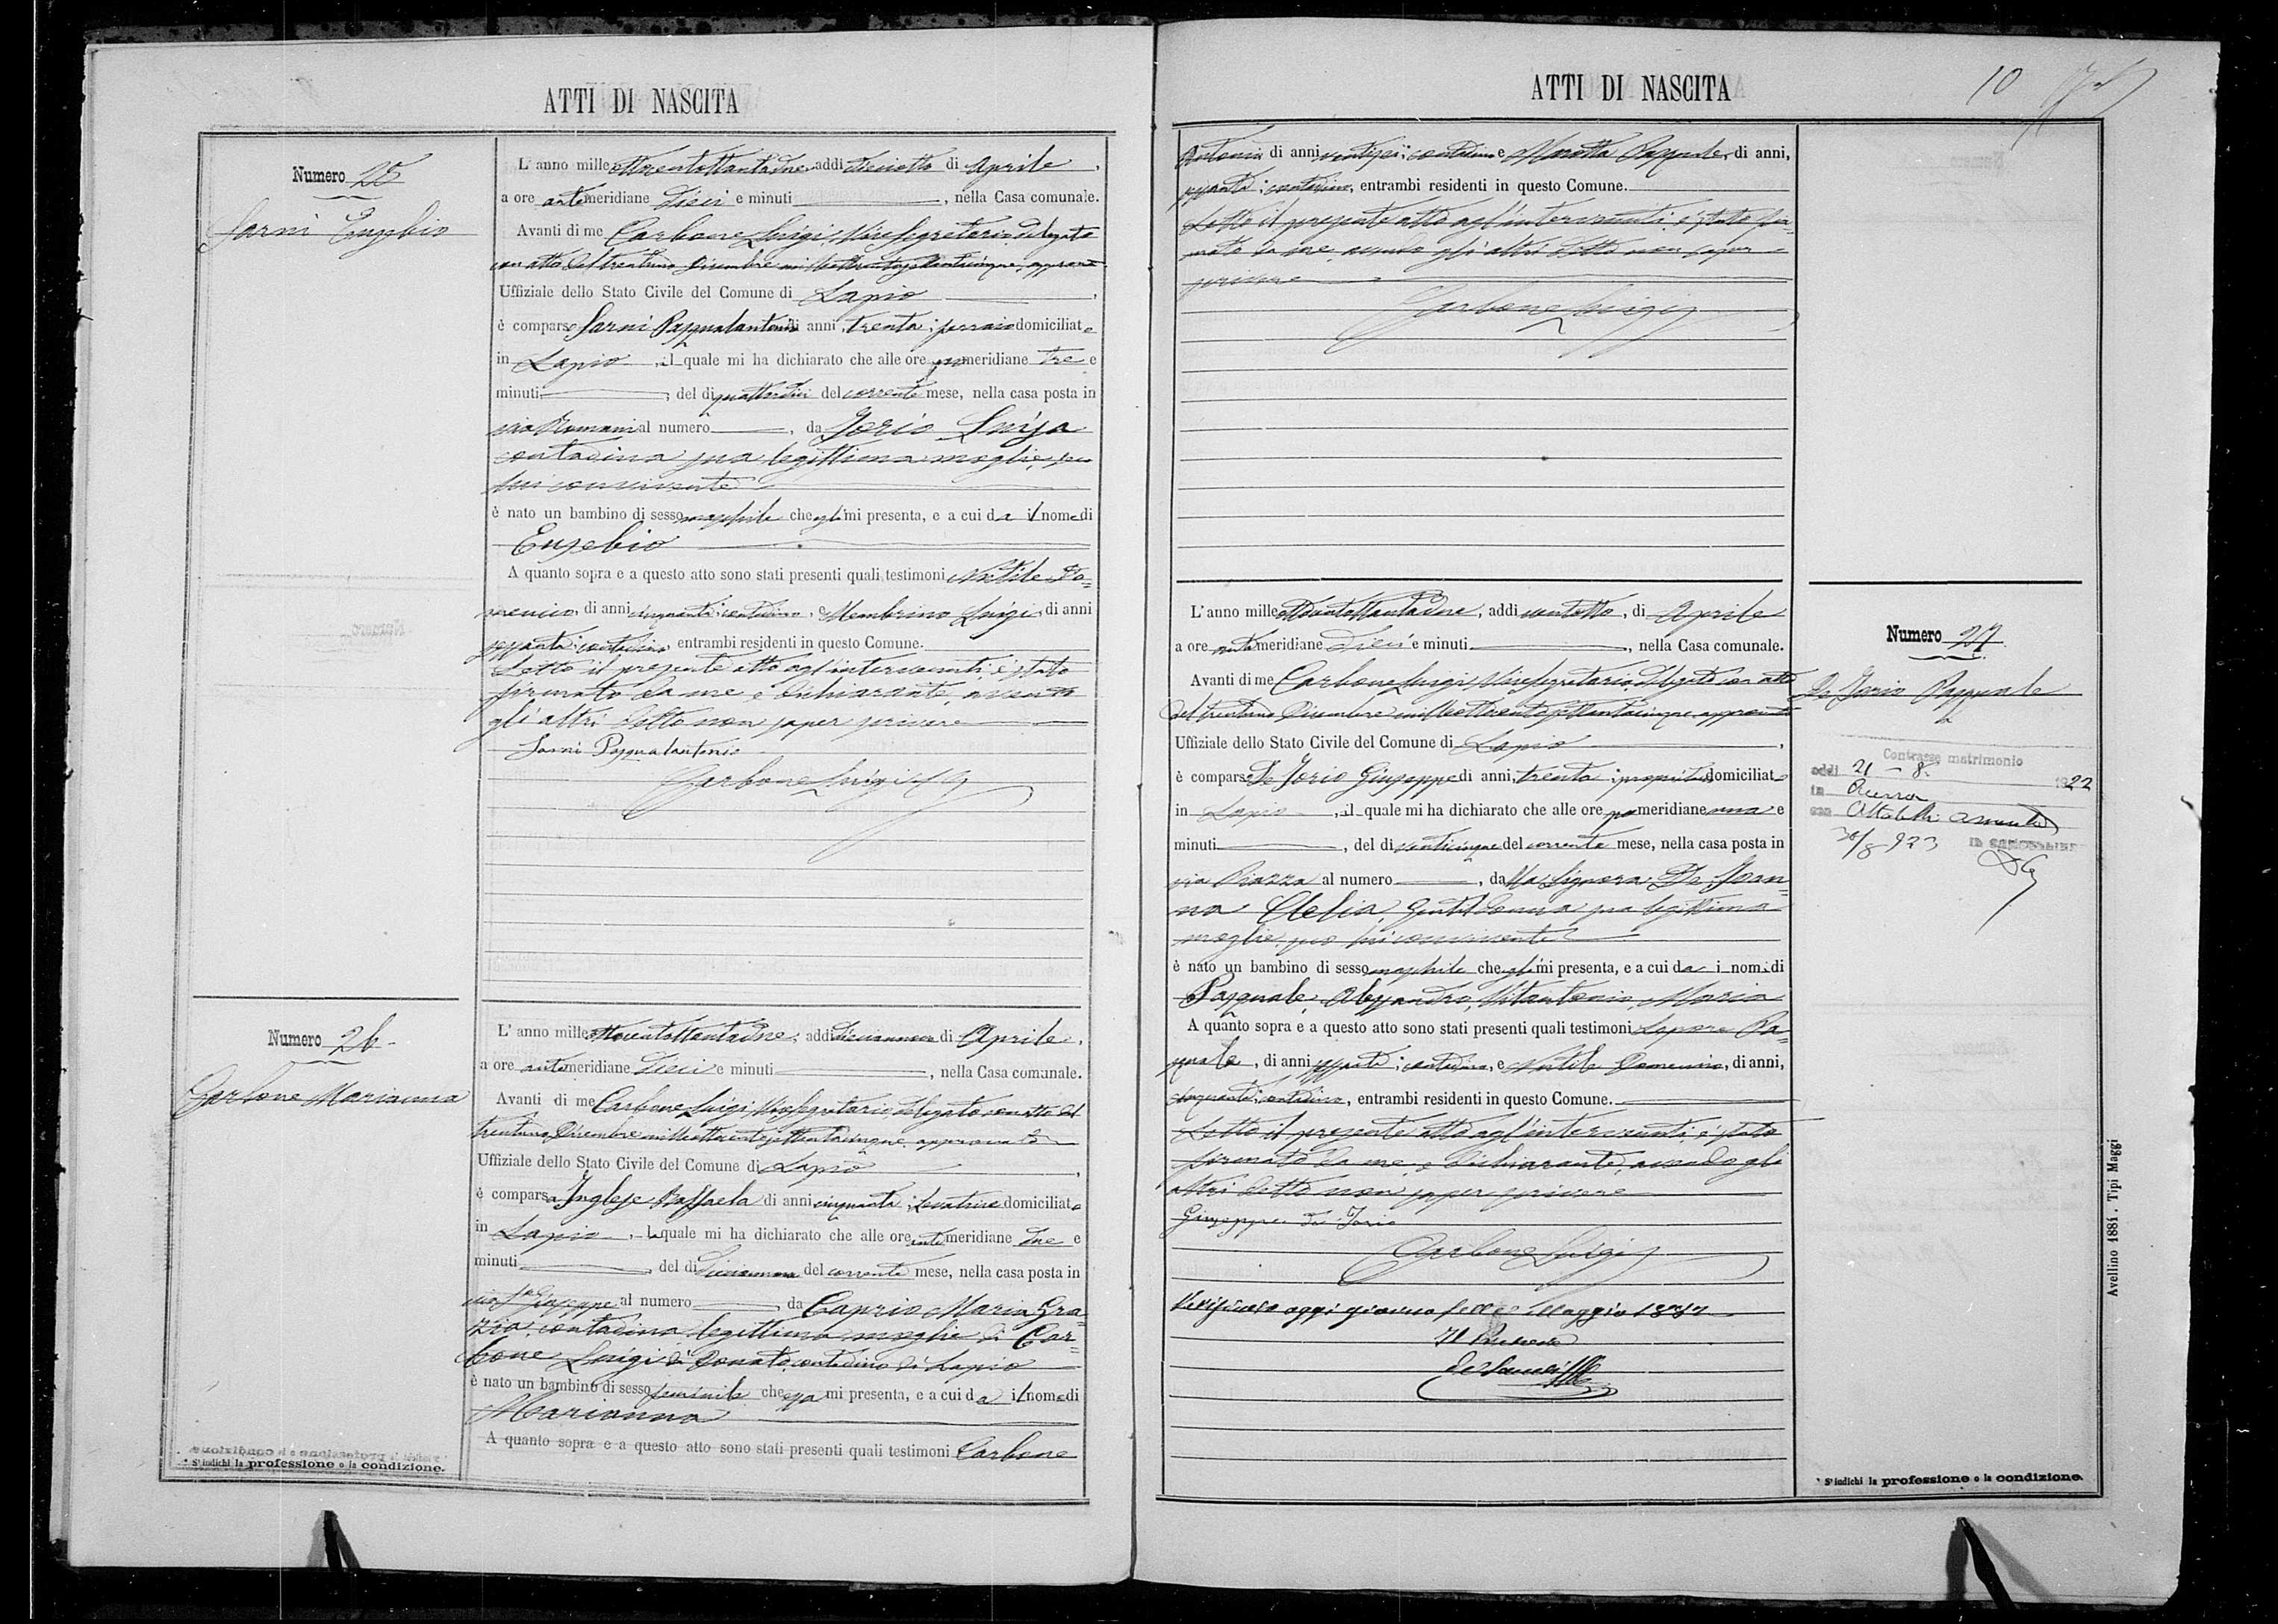 ATTI DI NASCITA
Numero 25
Sarni Eusebio
L'anno milleottocentottantadue, addì diciotto di Aprile,
a ore antimeridiane dieci e minuti, nella Casa comunale.
Avanti di me Carbone Luigi, Vicesegretario, delegato
con atto del trentuno Dicembre milleottocentosettantacinque, approvato
Uffiziale dello Stato Civile del Comune di Lapio,
è comparso Sarni Pasqualantonio di anni trenta; ferraio domiciliato
in Lapio, il quale mi ha dichiarato che alle ore pomeridiane tre e
minuti, del dì quattordici del corrente mese, nella casa posta in
via Romani al numero, da Jorio Luisa
contadina sua legittima moglie, seco
lui convivente
è nato un bambino di sesso maschile che egli mi presenta, e a cui da il nome di
Eusebio
A quanto sopra e a questo atto sono stati presenti quali testimoni Nutile Do=
menico, di anni cinquanta; contadino, e Membrino Luigi, di anni
sessanta; contadino, entrambi residenti in questo Comune.
Letto il presente atto agl'intervenuti, è stato
firmato da me e dichiarante, avendo
gli altri detto non saper scrivere
Sarni Pasqualantonio
Carbone Luigi
Numero 26
Carbone Marianna
L'anno milleottocentottantadue, addì diciannove di Aprile,
a ore antimeridiane dieci e minuti, nella Casa comunale.
Avanti di me Carbone Luigi, Vicesegretario delegato con atto del
trentuno Dicembre milleottocentosettantacinque, approvato
Uffiziale dello Stato Civile del Comune di Lapio,
è comparsa Inglese Raffaela di anni cinquanta; levatrice domiciliata
in Lapio, la quale mi ha dichiarato che alle ore antimeridiane due e
minuti, del dì diciannove del corrente mese, nella casa posta in
via S. Giuseppe al numero, da Caprio Maria Gra=
zia, contadina, legittima moglie di Car=
bone Luigi di Donato, contadino di Lapio
è nato un bambino di sesso feminile che essa mi presenta, e a cui da il nome di
Marianna
A quanto sopra e a questo atto sono stati presenti quali testimoni Carbone
* S'indichi la professione o la condizione.
ATTI DI NASCITA
10
Antonio di anni ventisei; contadino e Marotta Pasquale, di anni,
sessanta; contadino, entrambi residenti in questo Comune.
Letto il presente atto agl'intervenuti, è stato fir=
mato da me, avendo gli altri detto non saper
scrivere
Carbone Luigi
Numero 27
De Jorio Pasquale
Contrasse matrimonio
addì 21 - 8 1922
in
con
30/8 923
L'anno milleottocentottantadue, addì ventotto, di Aprile
a ore antimeridiane dieci e minuti, nella Casa comunale.
Avanti di me Carbone Luigi, Vicesegretario, delegato con atto
del trentuno Dicembre milleottocentosettantacinque, approvato
Uffiziale dello Stato Civile del Comune di Lapio,
è comparso De Jorio Giuseppe di anni trenta; proprietario domiciliato
in Lapio, il quale mi ha dichiarato che alle ore pomeridiane una e
minuti, del dì venticinque del corrente mese, nella casa posta in
via Piazza al numero, dalla Signora De Joan=
na Clelia, Gentildonna sua legittima
moglie, seco lui convivente
è nato un bambino di sesso maschile che egli mi presenta, e a cui da i nomi di
Pasquale, Alessandro, Vitantonio, Maria
A quanto sopra e a questo atto sono stati presenti quali testimoni Lepore Pa=
squale, di anni sessanta; contadino, e Nutile Domenico, di anni,
cinquanta; contadino, entrambi residenti in questo Comune.
Letto il presente atto agl'intervenuti, è stato
firmato da me e dichiarante, avendo gli
altri detto non saper scrivere
Giuseppe De Jorio
Carbone Luigi
Verificato oggi giorno sette Maggio 1882
Il Pretore
* S'indichi la professione o la condizione.
Avellino 1881. Tipi Maggi